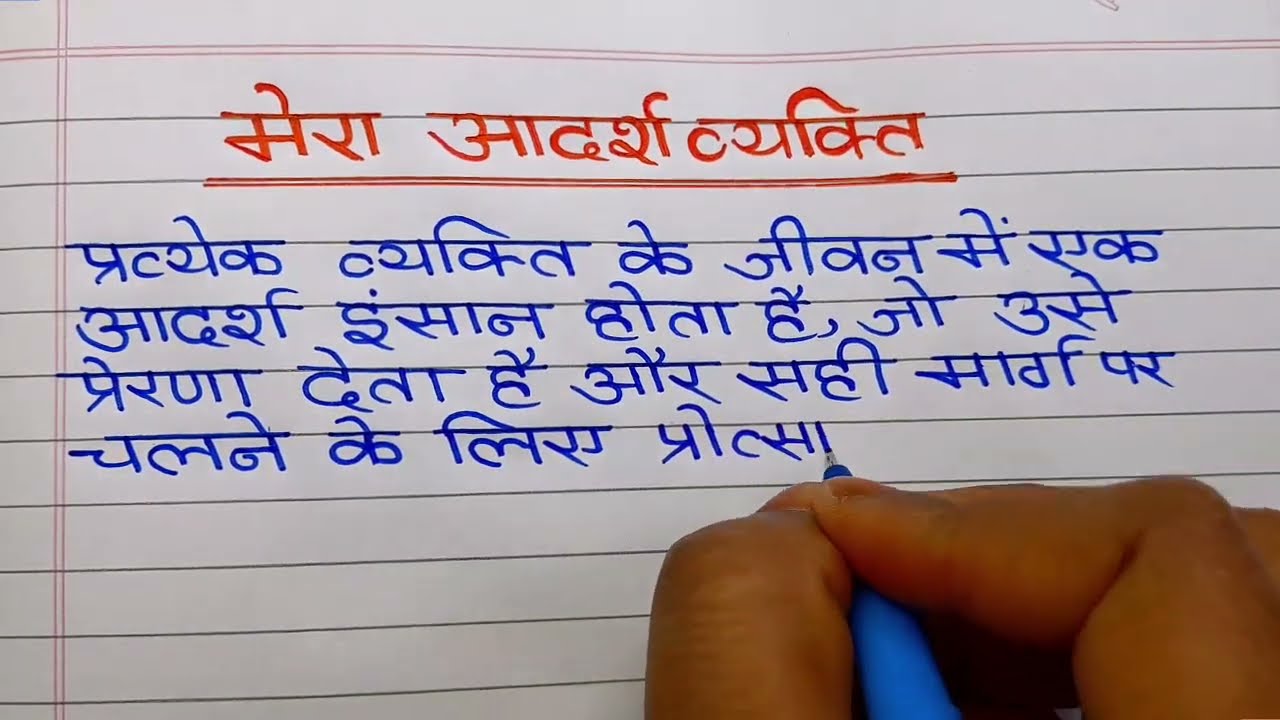 मेरा आदर्श व्यक्ति
प्रत्येक व्यक्ति के जीवन में एक
आदर्श इंसान होता है, जो उसे
प्रेरणा देता है और सही मार्ग पर
चलने के लिए प्रोत्सा